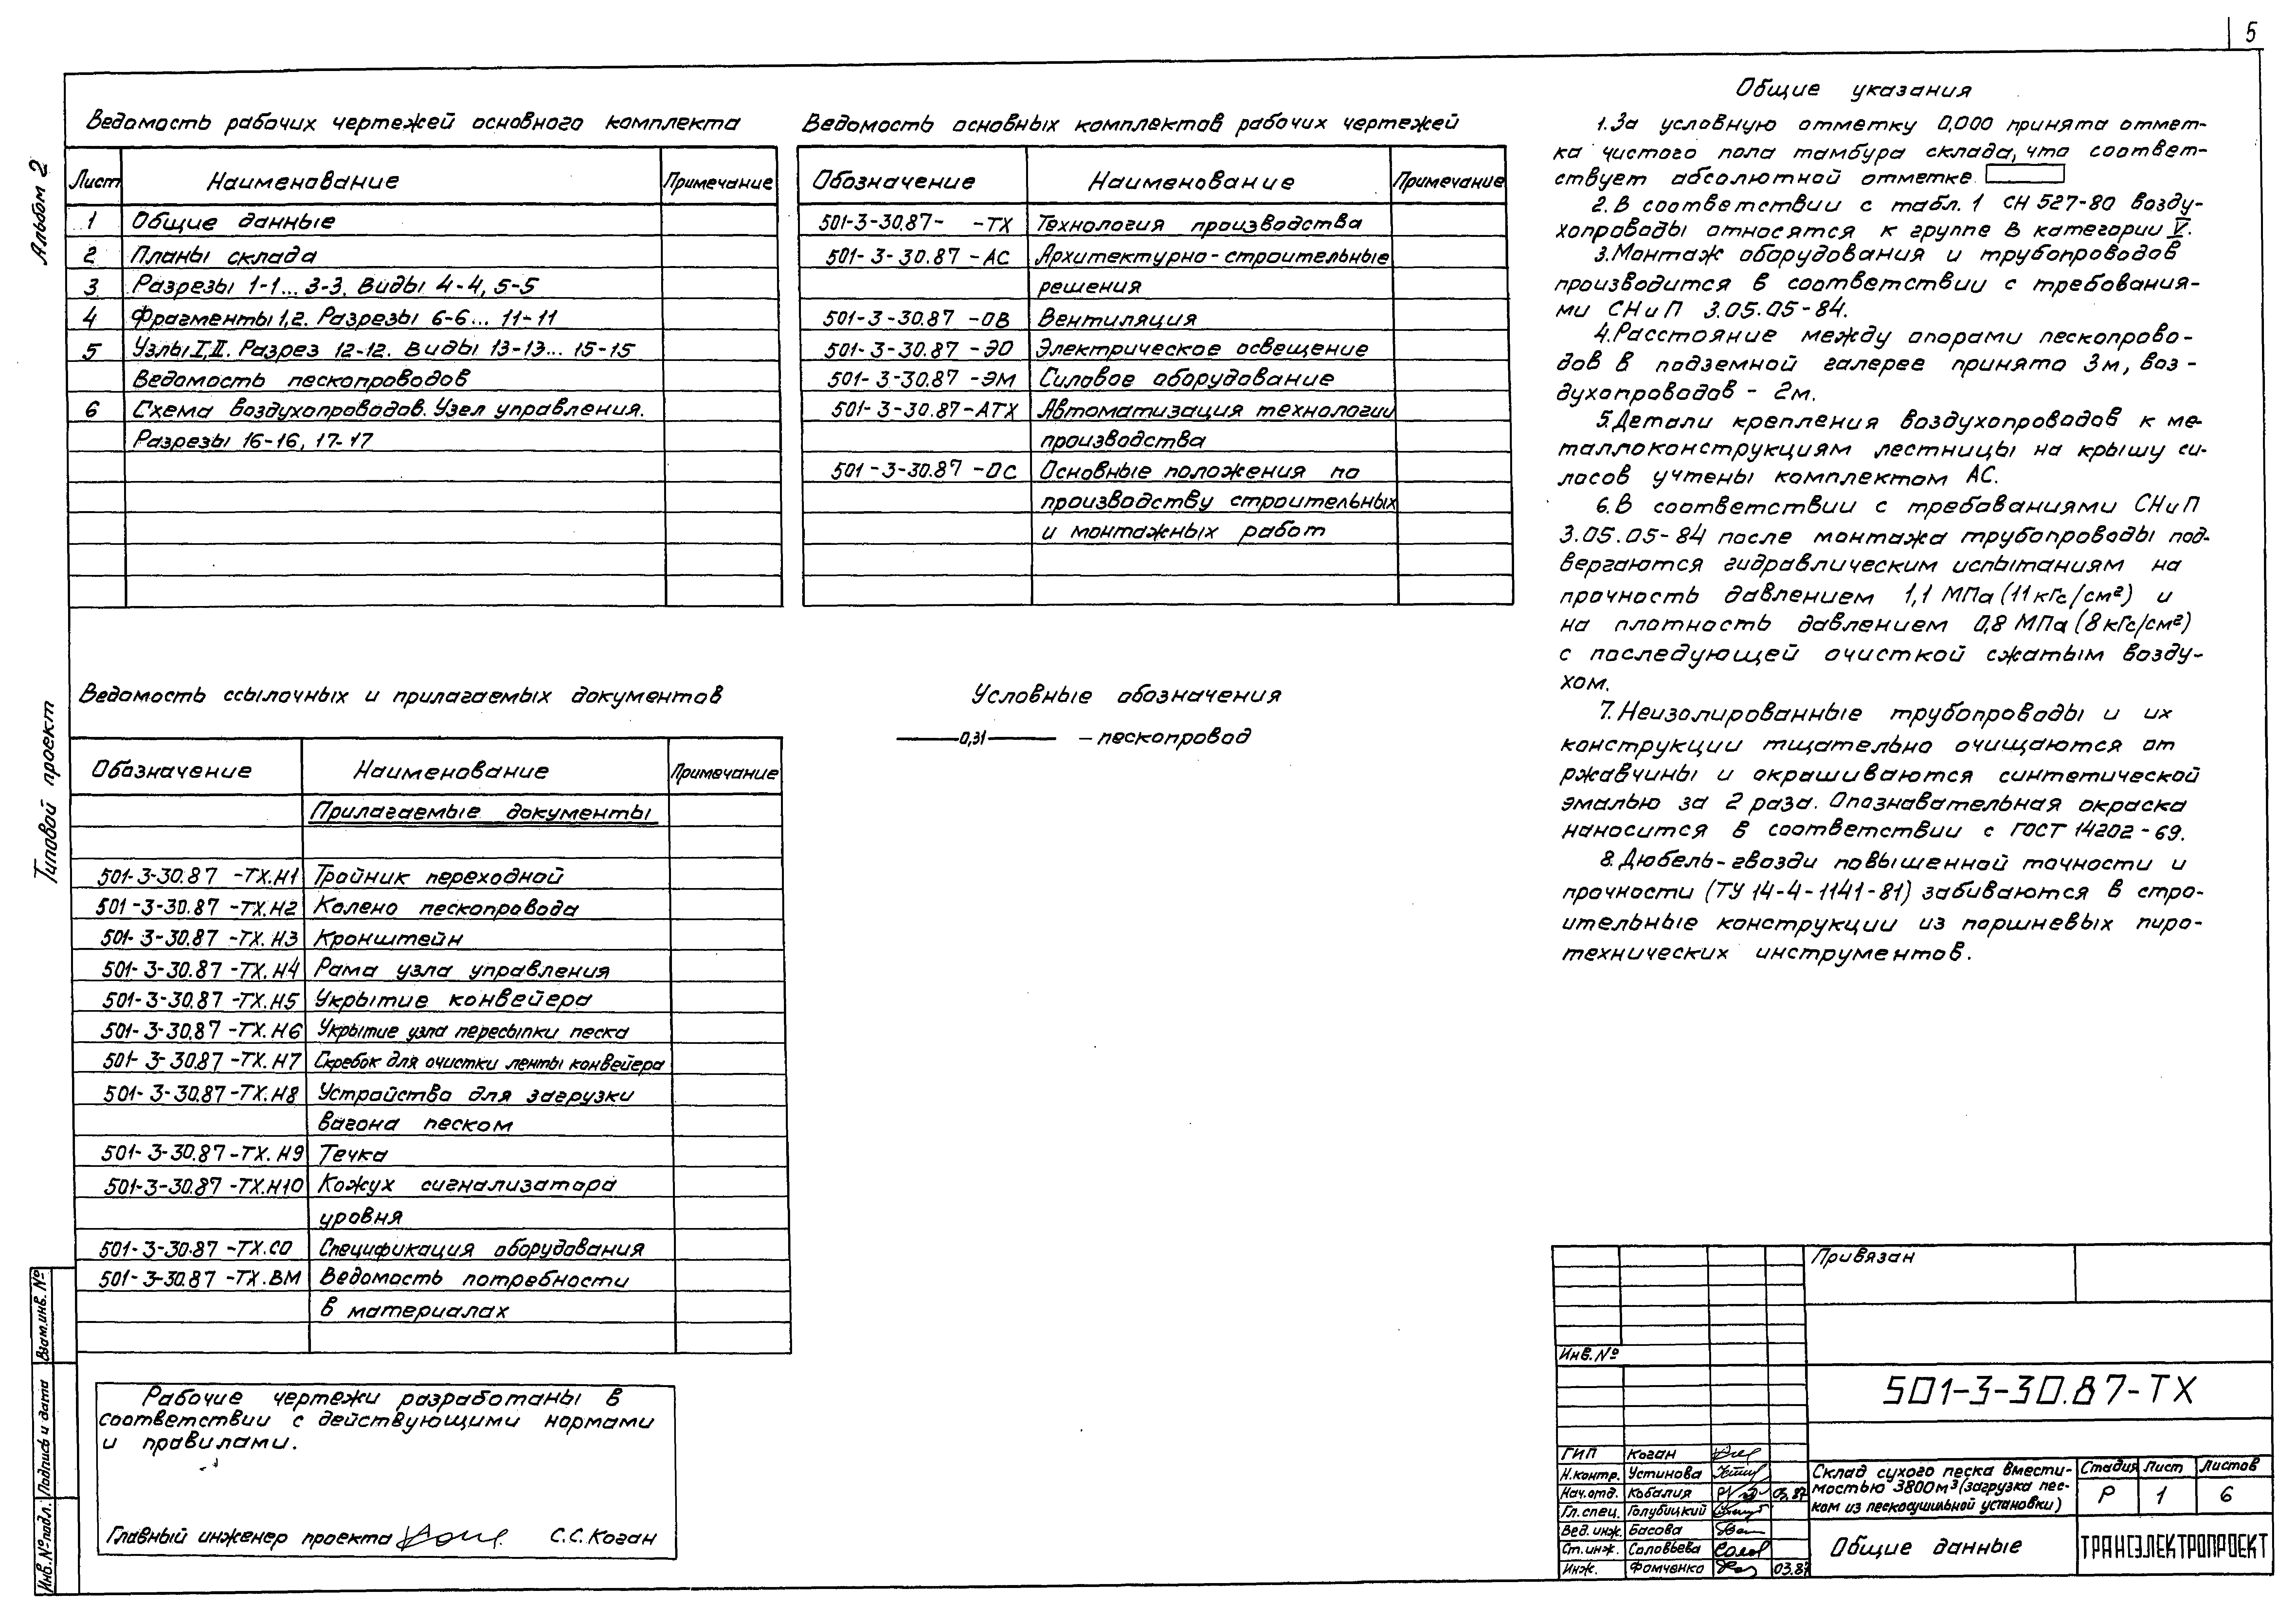 5
Альбом 2
Типовой проект
Ведомость рабочих чертежей основного комплекта
Лист Наименование Примечание
1 Общие данные
2 Планы склада
3 Разрезы 1-1... 3-3. Виды 4-4, 5-5
4 Фрагменты 1,2. Разрезы 6-6... 11-11
5 Узлы I, II. Разрез 12-12. Виды 13-13... 15-15
Ведомость пескопроводов
6 Схема воздухопроводов. Узел управления.
Разрезы 16-16, 17-17
Ведомость основных комплектов рабочих чертежей
Обозначение Наименование Примечание
501-3-30.87- -ТХ Технология производства
501-3-30.87 -АС Архитектурно-строительные
решения
501-3-30.87 -ОВ Вентиляция
501-3-30.87 -ЭО Электрическое освещение
501-3-30.87 -ЭМ Силовое оборудование
501-3-30.87-АТХ Автоматизация технологии
производства
501-3-30.87 -ОС Основные положения по
производству строительных
и монтажных работ
Ведомость ссылочных и прилагаемых документов
Обозначение Наименование Примечание
Прилагаемые документы
501-3-30.87 -ТХ.Н1 Тройник переходной
501-3-30.87 -ТХ.Н2 Колено пескопровода
501-3-30.87 -ТХ.Н3 Кронштейн
501-3-30.87 -ТХ.Н4 Рама узла управления
501-3-30.87 -ТХ.Н5 Укрытие конвейера
501-3-30.87 -ТХ.Н6 Укрытие узла пересыпки песка
501-3-30.87 -ТХ.Н7 Скребок для очистки ленты конвейера
501-3-30.87 -ТХ.Н8 Устройство для загрузки
вагона песком
501-3-30.87-ТХ.Н9 Течка
501-3-30.87 -ТХ.Н10 Кожух сигнализатора
уровня
501-3-30.87 -ТХ.СО Спецификация оборудования
501-3-30.87 -ТХ.ВМ Ведомость потребности
в материалах
Условные обозначения
0,31 - пескопровод
Рабочие чертежи разработаны в
соответствии с действующими нормами
и правилами.
Главный инженер проекта С.С. Коган
Общие указания
1. За условную отметку 0,000 принята отмет-
ка чистого пола тамбура склада, что соответ-
ствует абсолютной отметке
2. В соответствии с табл. 1 СН 527-80 возду-
хопроводы относятся к группе В категории V.
3. Монтаж оборудования и трубопроводов
производится в соответствии с требования-
ми СНиП 3.05.05-84.
4. Расстояние между опорами пескопрово-
дов в подземной галерее принято 3м, воз-
духопроводов - 2м.
5. Детали крепления воздухопроводов к ме-
таллоконструкциям лестницы на крышу си-
лосов учтены комплектом АС.
6. В соответствии с требованиями СНиП
3.05.05-84 после монтажа трубопроводы под-
вергаются гидравлическим испытаниям на
прочность давлением 1,1 МПа (11 кгс/см²) и
на плотность давлением 0,8 МПа (8 кгс/см²)
с последующей очисткой сжатым возду-
хом.
7. Неизолированные трубопроводы и их
конструкции тщательно очищаются от
ржавчины и окрашиваются синтетической
эмалью за 2 раза. Опознавательная окраска
наносится в соответствии с ГОСТ 14202-69.
8. Дюбель-гвозди повышенной точности и
прочности (ТУ 14-4-1141-81) забиваются в стро-
ительные конструкции из поршневых пиро-
технических инструментов.
Привязан
Инв. №
501-3-30.87-ТХ
ГИП Коган
Н.контр. Устинова
Нач.отд. Кобалия 03.87
Гл. спец. Голубицкий
Вед. инж. Басова
Ст. инж. Соловьева
Инж. Фомченко 03.87
Склад сухого песка вмести-
мостью 3800м³ (загрузка пес-
ком из пескосушильной установки)
Стадия Лист Листов
Р 1 6
Общие данные
ТРАНСЭЛЕКТРОПРОЕКТ
Взам. инв. №
Подпись и дата
Инв. № подл.